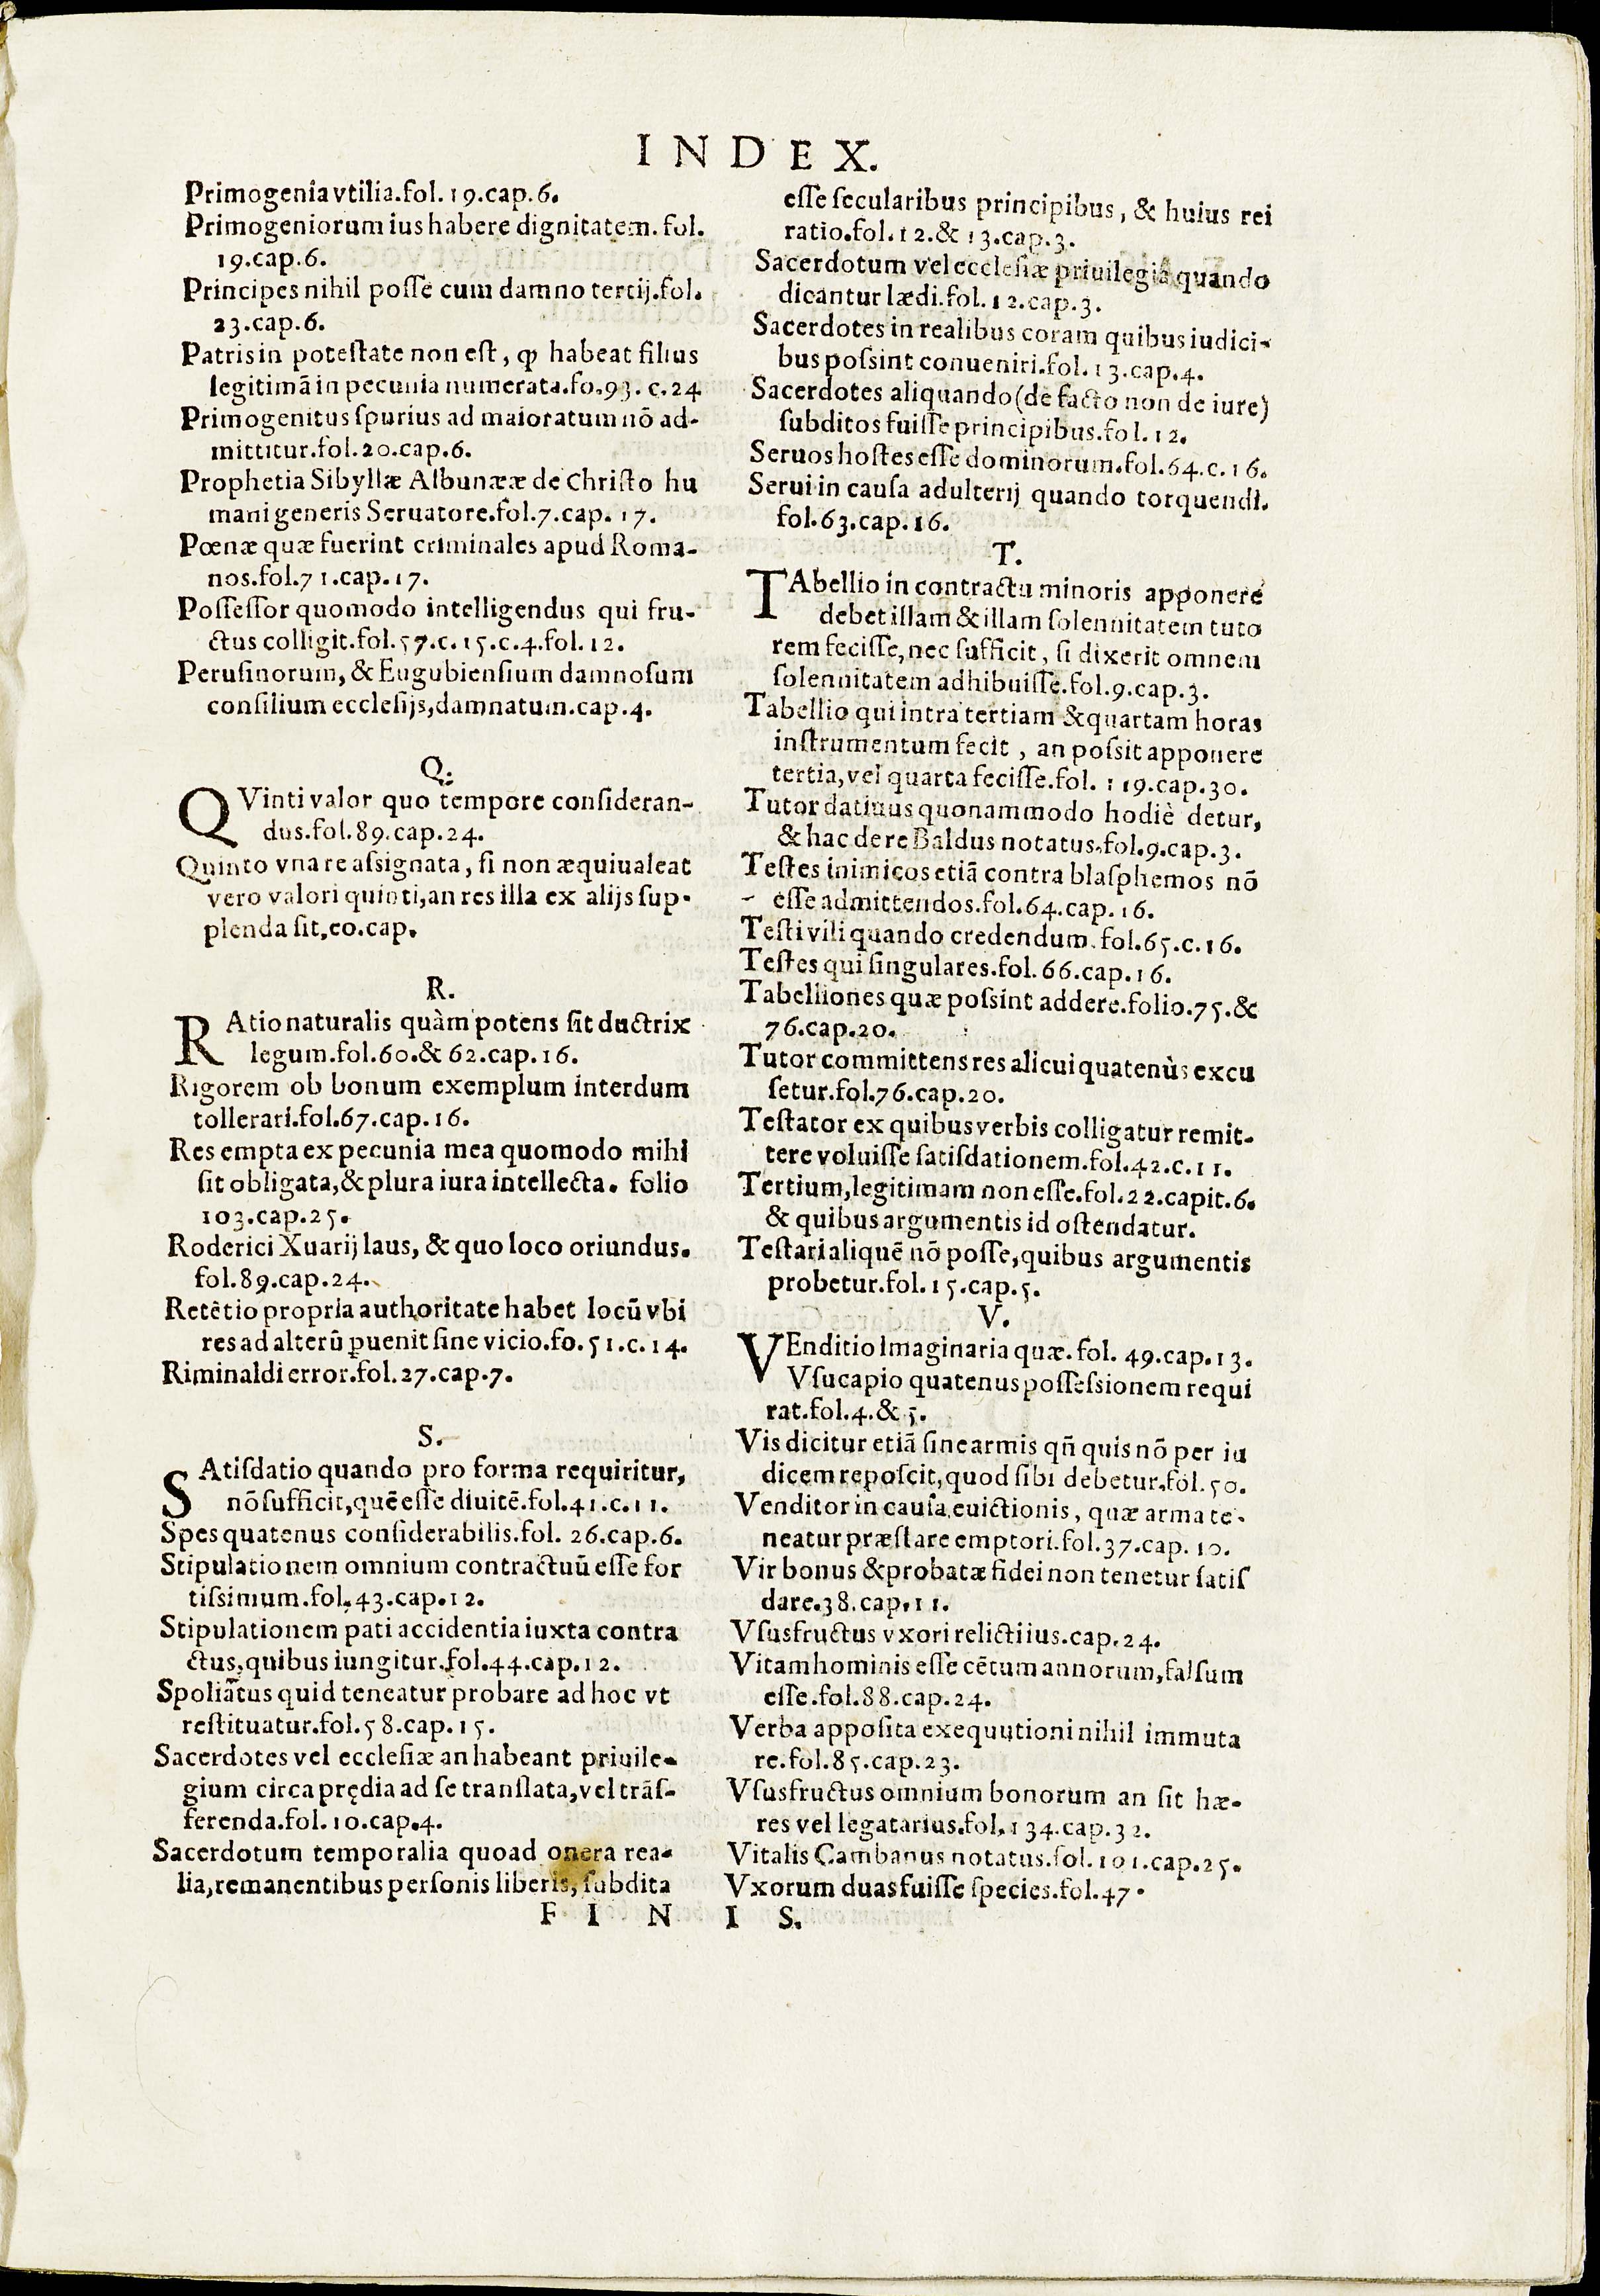 INDEX.
Primogenia vtilia.fol.19.cap.6.
Primogeniorum ius habere dignitatem. fol.
19.cap.6.
Principes nihil posse cum damno tertij.fol.
23.cap.6.
Patris in potestate non est, ꝙ habeat filius
legitimā in pecunia numerata.fo.93. c.24
Primogenitus spurius ad maioratum nō ad-
mittitur.fol.20.cap.6.
Prophetia Sibyllæ Albunææ de Christo hu
mani generis Seruatore.fol.7.cap. 17.
Pœnæ quæ fuerint criminales apud Roma-
nos.fol.71.cap.17.
Possessor quomodo intelligendus qui fru-
ctus colligit.fol.57.c.15.c.4.fol.12.
Perusinorum, & Eugubiensium damnosum
consilium ecclesijs,damnatum.cap.4.
Q.
QVinti valor quo tempore consideran-
dus.fol.89.cap.24.
Quinto vna re assignata, si non æquiualeat
vero valori quinti,an res illa ex alijs sup-
plenda sit,eo.cap.
R.
RAtio naturalis quàm potens sit ductrix
legum.fol.60.& 62.cap.16.
Rigorem ob bonum exemplum interdum
tollerari.fol.67.cap.16.
Res empta ex pecunia mea quomodo mihi
sit obligata,& plura iura intellecta. folio
103.cap.25.
Roderici Xuarij laus, & quo loco oriundus.
fol.89.cap.24.
Retētio propria authoritate habet locū vbi
res ad alterū ꝑuenit sine vicio.fo.51.c.14.
Riminaldi error.fol.27.cap.7.
S.
SAtisdatio quando pro forma requiritur,
nō sufficit,quē esse diuitē.fol.41.c.11.
Spes quatenus considerabilis.fol. 26.cap.6.
Stipulationem omnium contractuū esse for
tissimum.fol.43.cap.12.
Stipulationem pati accidentia iuxta contra
ctus,quibus iungitur.fol.44.cap.12.
Spoliatus quid teneatur probare ad hoc vt
restituatur.fol.58.cap.15.
Sacerdotes vel ecclesiæ an habeant priuile-
gium circa prędia ad se translata,vel trāf-
ferenda.fol.10.cap.4.
Sacerdotum temporalia quoad onera rea-
lia,remanentibus personis liberis, subdita
esse secularibus principibus, & huius rei
ratio.fol.12.& 13.cap.3.
Sacerdotum vel ecclesiæ priuilegia quando
dicantur lædi.fol.12.cap.3.
Sacerdotes in realibus coram quibus iudici-
bus possint conueniri.fol.13.cap.4.
Sacerdotes aliquando (de facto non de iure)
subditos fuisse principibus.fol.12.
Seruos hostes esse dominorum.fol.64.c.16.
Serui in causa adulterij quando torquendi.
fol.63.cap.16.
T.
TAbellio in contractu minoris apponere
debet illam & illam solennitatem tuto
rem fecisse, nec sufficit, si dixerit omnem
solennitatem adhibuisse.fol.9.cap.3.
Tabellio qui intra tertiam & quartam horas
instrumentum fecit, an possit apponere
tertia,vel quarta fecisse.fol. 119.cap.30.
Tutor datiuus quonammodo hodiè detur,
& hac de re Baldus notatus.fol.9.cap.3.
Testes inimicos etiā contra blasphemos nō
esse admittendos.fol.64.cap.16.
Testi vili quando credendum. fol.65.c.16.
Testes qui singulares.fol.66.cap.16.
Tabelliones quæ possint addere.folio.75.&
76.cap.20.
Tutor committens res alicui quatenùs excu
setur.fol.76.cap.20.
Testator ex quibus verbis colligatur remit-
tere voluisse satisdationem.fol.42.c.11.
Tertium,legitimam non esse.fol.22.capit.6.
& quibus argumentis id ostendatur.
Testari aliquē nō posse,quibus argumentis
probetur.fol.15.cap.5.
V.
VEnditio imaginaria quæ.fol. 49.cap.13.
Vsucapio quatenus possessionem requi
rat.fol.4.& 5.
Vis dicitur etiā sine armis qñ quis nō per iu
dicem reposcit,quod sibi debetur.fol.50.
Venditor in causa euictionis, quæ arma te-
neatur præstare emptori.fol.37.cap. 10.
Vir bonus & probatæ fidei non tenetur satis
dare.38.cap.11.
Vsusfructus vxori relicti ius.cap.24.
Vitam hominis esse cētum annorum,falsum
esse.fol.88.cap.24.
Verba apposita exequutioni nihil immuta
re.fol.85.cap.23.
Vsusfructus omnium bonorum an sit hæ-
res vel legatarius.fol.134.cap.32.
Vitalis Cambanus notatus.fol.101.cap.25.
Vxorum duas fuisse species.fol.47.
FINIS.